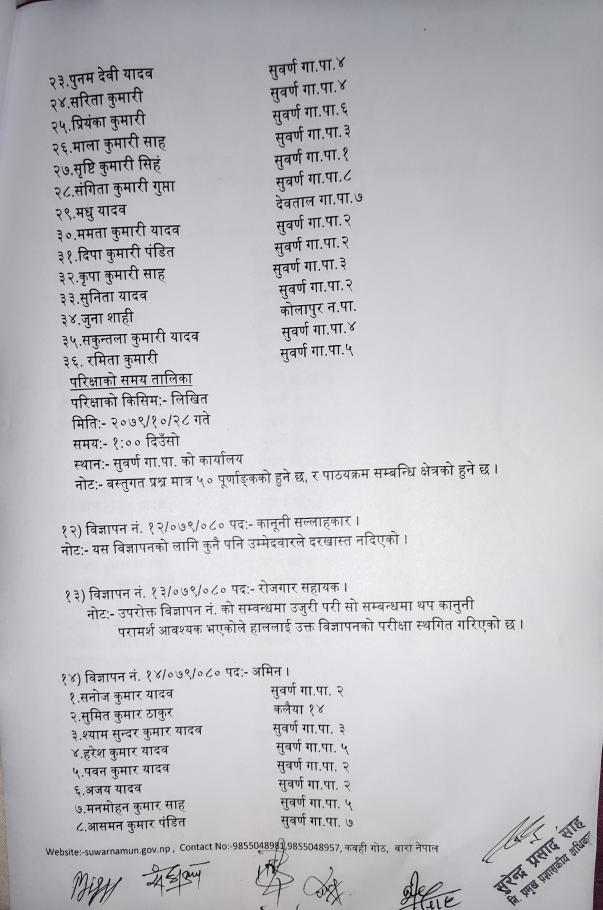 २३.पुनम देवी यादव सुवर्ण गा.पा.४
२४.सरिता कुमारी सुवर्ण गा.पा.४
२५.प्रियंका कुमारी सुवर्ण गा.पा.६
२६.माला कुमारी साह सुवर्ण गा.पा.३
२७.सृष्टि कुमारी सिहं सुवर्ण गा.पा.१
२८.संगिता कुमारी गुप्ता सुवर्ण गा.पा.८
२९.मधु यादव देवताल गा.पा.७
३०.ममता कुमारी यादव सुवर्ण गा.पा.२
३१.दिपा कुमारी पंडित सुवर्ण गा.पा.२
३२.कृपा कुमारी साह सुवर्ण गा.पा.३
३३.सुनिता यादव सुवर्ण गा.पा.२
३४.जुना शाही कोलापुर न.पा.
३५.सकुन्तला कुमारी यादव सुवर्ण गा.पा.४
३६. रमिता कुमारी सुवर्ण गा.पा.५
परिक्षाको समय तालिका
परिक्षाको किसिम:- लिखित
मिति:- २०७९/१०/२८ गते
समय:- १:०० दिउँसो
स्थान:- सुवर्ण गा.पा. को कार्यालय
नोट:- बस्तुगत प्रश्न मात्र ५० पूर्णाङ्कको हुने छ, र पाठयक्रम सम्बन्धि क्षेत्रको हुने छ ।
१२) विज्ञापन नं. १२/०७९/०८० पद:- कानूनी सल्लाहकार ।
नोट:- यस विज्ञापनको लागि कुनै पनि उम्मेदवारले दरखास्त नदिएको ।
१३) विज्ञापन नं. १३/०७९/०८० पद:- रोजगार सहायक ।
नोट:- उपरोक्त विज्ञापन नं. को सम्वन्धमा उजुरी परी सो सम्बन्धमा थप कानुनी
परामर्श आवश्यक भएकोले हाललाई उक्त विज्ञापनको परीक्षा स्थगित गरिएको छ ।
१४) विज्ञापन नं. १४/०७९/०८० पद:- अमिन ।
१.सनोज कुमार यादव सुवर्ण गा.पा. २
२.सुमित कुमार ठाकुर कलैया १४
३.श्याम सुन्दर कुमार यादव सुवर्ण गा.पा. ३
४.हरेश कुमार यादव सुवर्ण गा.पा. ५
५.पवन कुमार यादव सुवर्ण गा.पा. २
६.अजय यादव सुवर्ण गा.पा. २
७.मनमोहन कुमार साह सुवर्ण गा.पा. ५
८.आसमन कुमार पंडित सुवर्ण गा.पा. ७
Website:-suwarnamun.gov.np , Contact No:-9855048981,9855048957, कवही गोठ, बारा नेपाल
सुरेन्द्र प्रसाद साह
नि. प्रमुख प्रशासकीय अधिकृत